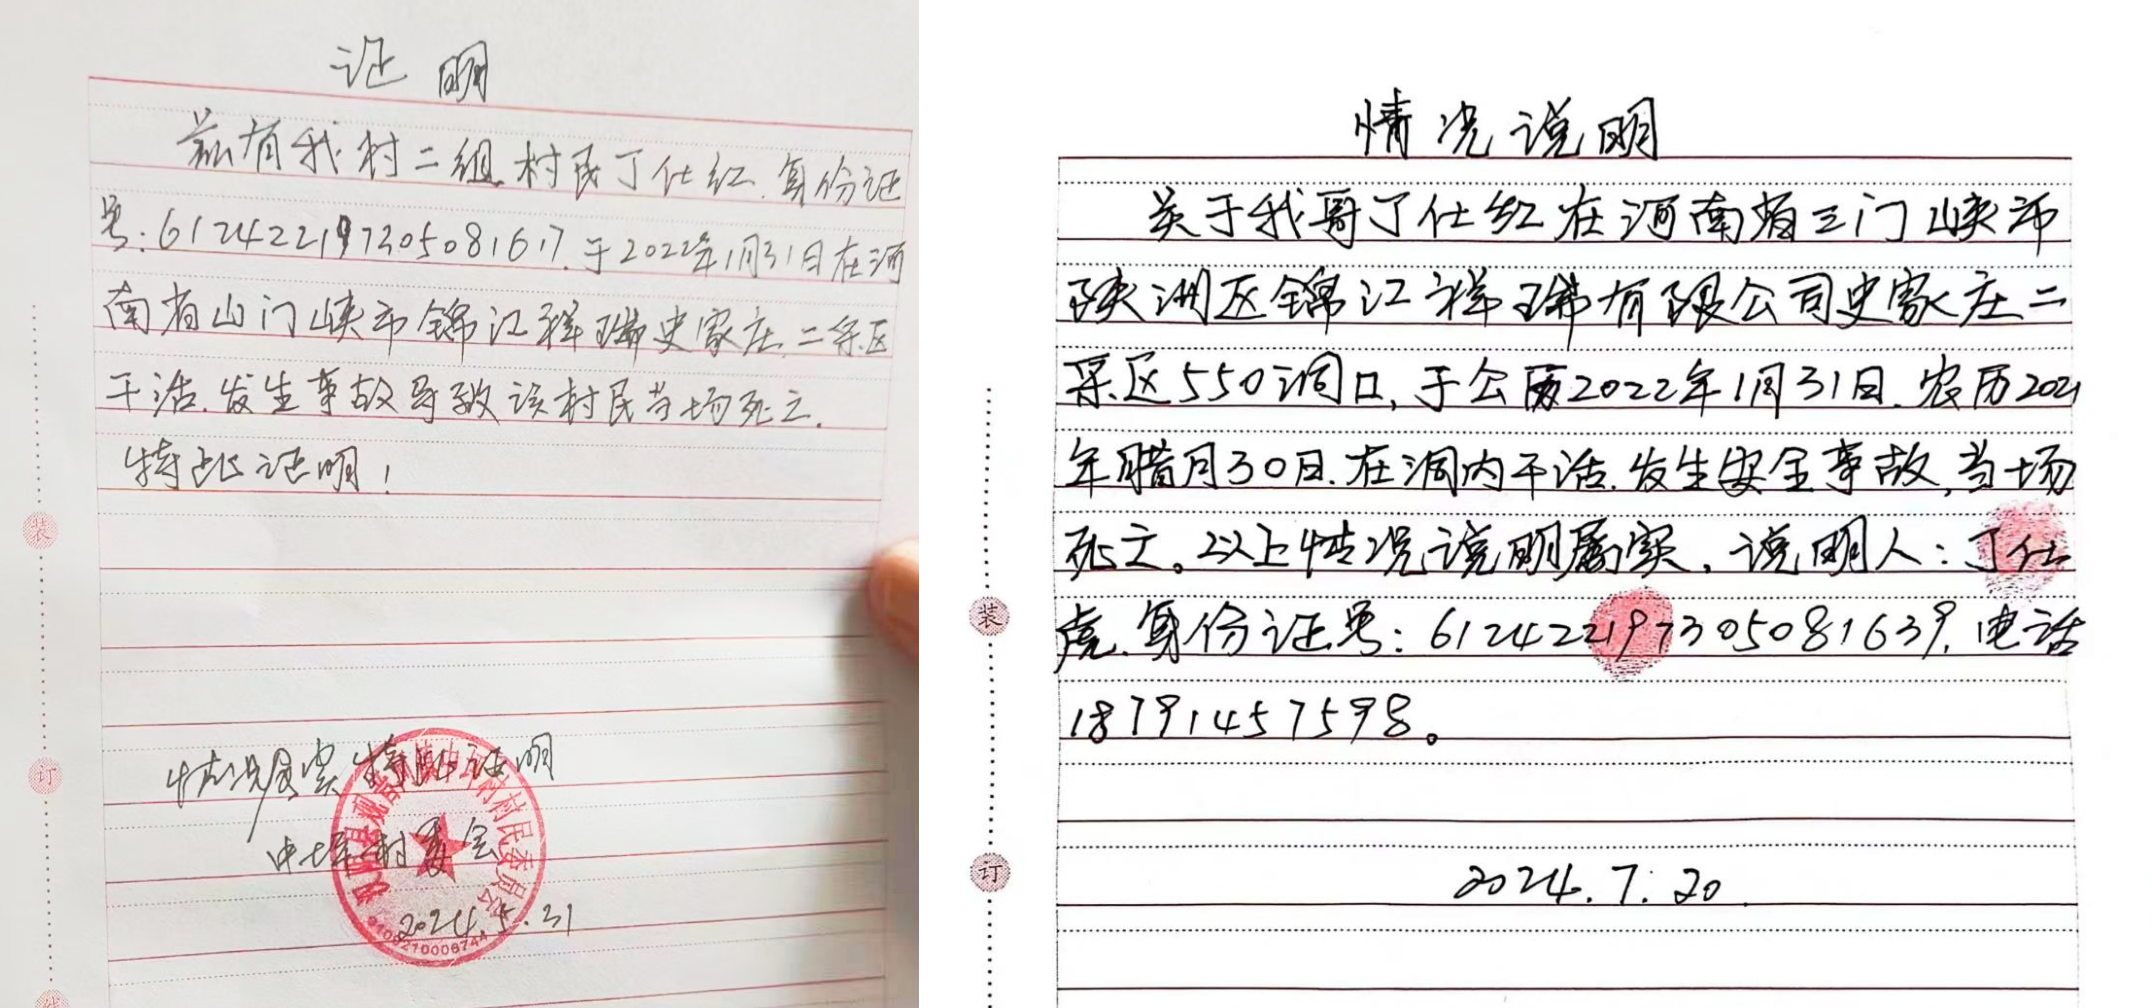 证明
兹有我村二组村民丁仕红.身份证
号:612422197305081617.于2022年1月31日在河
南省山门峡市锦江祥瑞史家庄二采区
干活.发生事故导致该村民当场死亡.
特此证明!
情况属实 特此证明
中坪村委会
2024.5.31
装
订
情况说明
关于我哥丁仕红在河南省三门峡市
陕洲区锦江祥瑞有限公司史家庄二
采区550洞口,于公历2022年1月31日.农历2021
年腊月30日.在洞内干活.发生安全事故,当场
死亡。以上情况说明属实,说明人:丁仕
虎.身份证号:612422197305081639.电话
18791457598。
2024.7.20
装
订